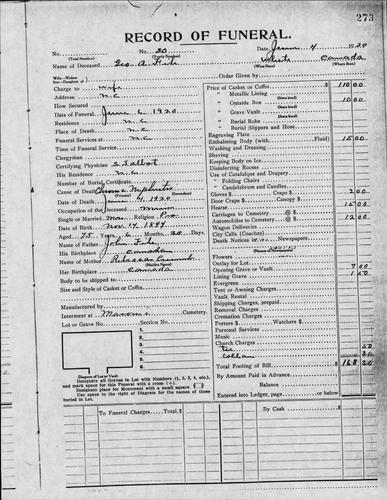 273
RECORD OF FUNERAL.
No. No. 20 Date, June 4 1920
(Total Number) (Yearly Number) white Canada
Name of Deceased Geo. A. (What Race) (Where Born)
Charge to wife Order Given by
Address N.C. Price of Casket or Coffin 110 00
How Secured " Metallic Lining
Date of Funeral June 6, 1920 " Outside Box 10 00
Residence N.C. " Grave Vault
Place of Death N.C. " Burial Robe
Funeral Services at N.C. " Burial Slippers and Hose
Time of Funeral Service Engraving Plate
Clergyman Embalming Body (with Fluid) 15 00
Certifying Physician S. Talbot Washing and Dressing
His Residence N.C. Shaving
Number of Burial Certificate Keeping Body on Ice
Cause of Death Chronic Nephritis Disinfecting Rooms
Date of Death June 4, 1920 Use of Catafalque and Drapery
Occupation of the Deceased " Folding Chairs
Single or Married Mar. Religion " Candelabrum and Candles
Date of Birth Nov. 14 Gloves $ 2 00
Aged 75 Years, 6 Months, 20 Days Door Crape $ Canopy $
Name of Father John Hearse 15 00
His Birthplace Canada Carriages to Cemetery @ $
Name of Mother Rebecca Automobiles to Cemetery @ $ 12 00
Her Birthplace Canada Wagon Deliveries
Body to be shipped to City Calls (Coaches)
Size and Style of Casket or Coffin Death Notices in Newspapers
Flowers
Outlay for Lot
Opening Grave or Vault 7 00
Lining Grave 1 50
Evergreen
Tent or Awning Charges
Vault Rental
Shipping Charges, prepaid
Manufactured by Removal Charges
Interment at Cemetery. Cremation Charges
Lot or Grave No. Section No. Porters $ Watchers $
1 Personal Services
2 Music
3 Church Charges
4 50
5 30
6 Total Footing of Bill $ 168 30
Diagram of Lot or Vault By Amount Paid in Advance
Designate all Graves in Lot with Numbers (1, 2, 3, 4, etc.), Balance
and mark space for this Funeral with a cross (+).
Designate place for Monument with a small square
Use space to right of Diagram for the names of those
buried in Lot. Entered into Ledger, page or below
To Funeral Charges, Total $ By Cash $